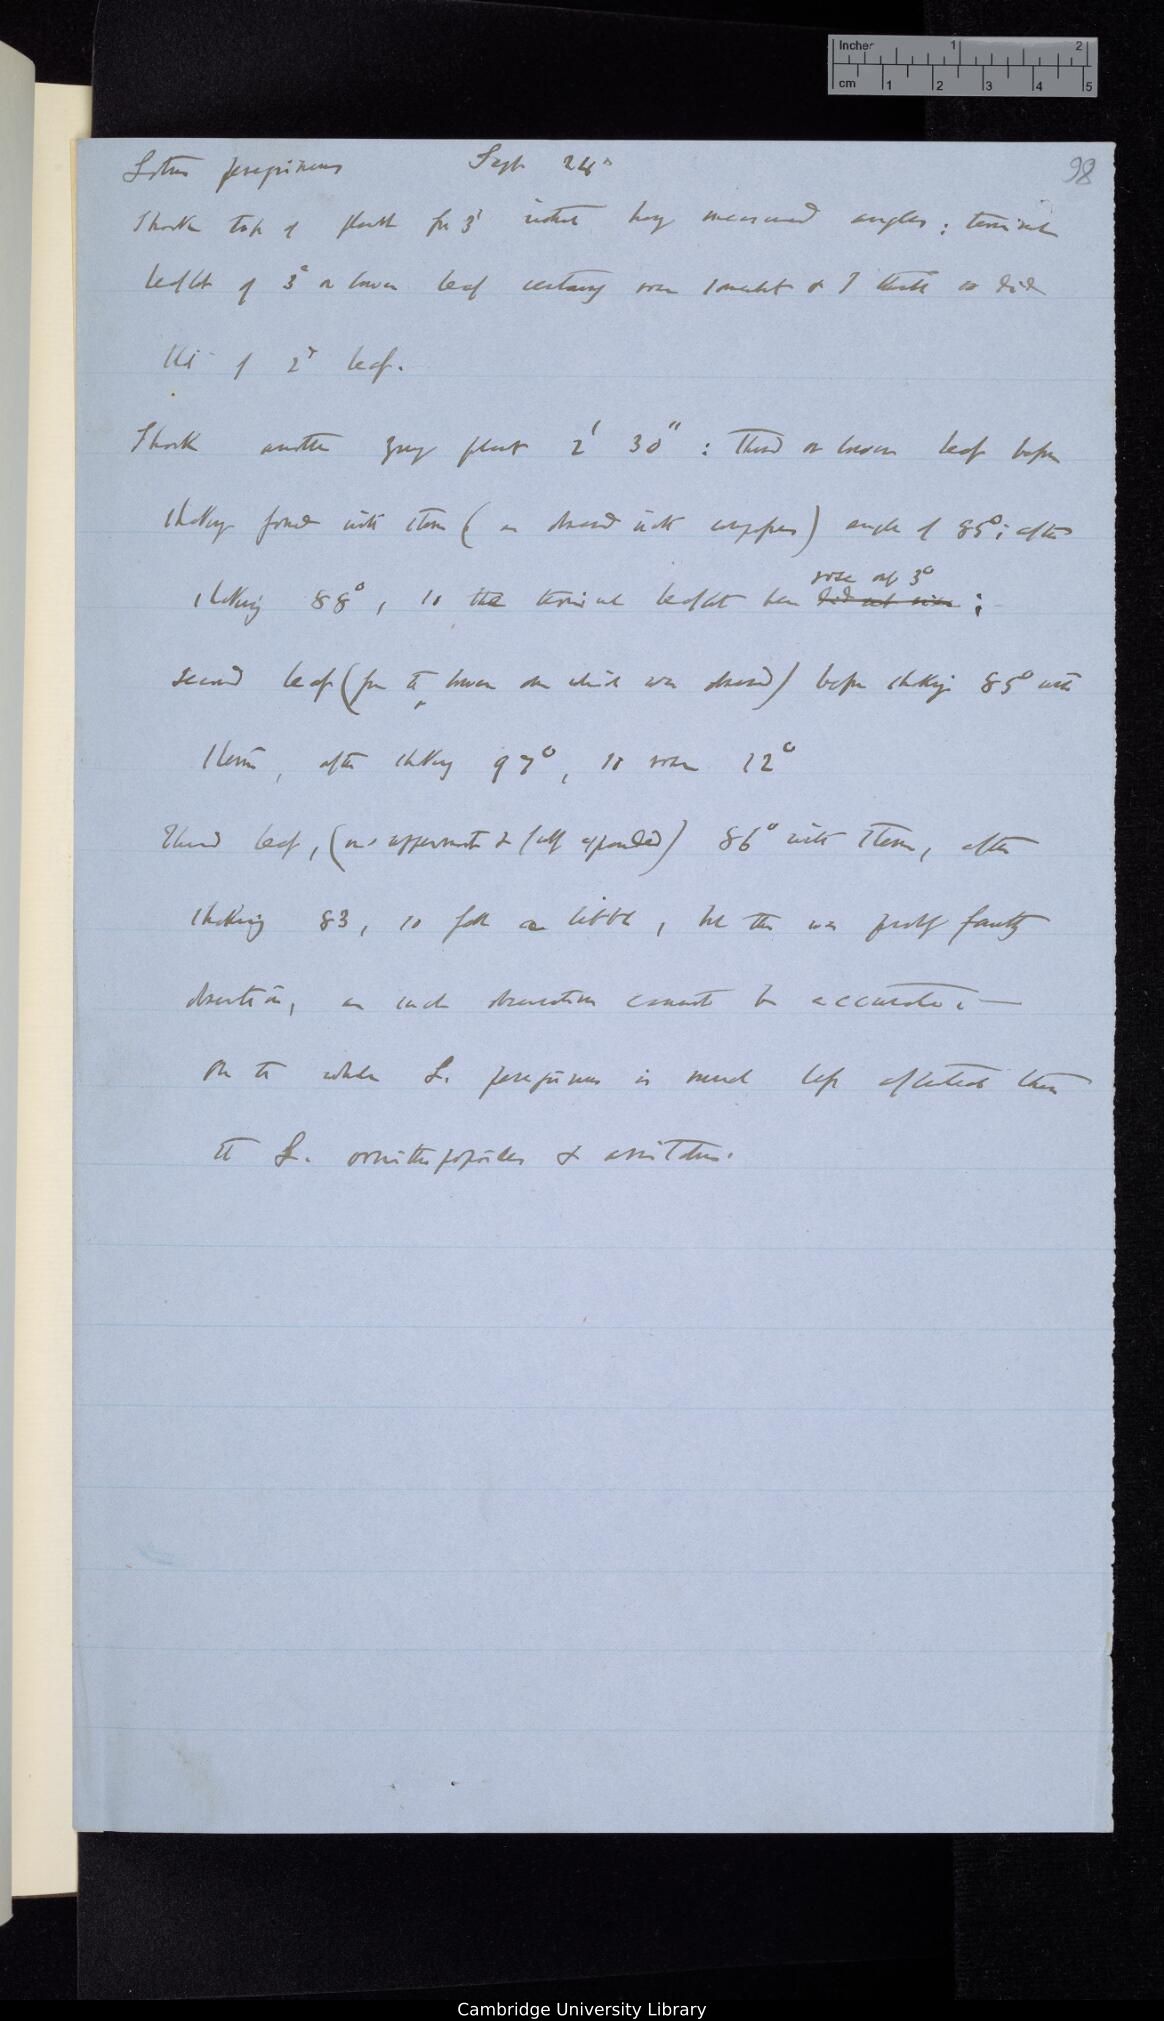 Inches 1 2
cm 1 2 3 4 5
98
Lotus peregrinus Sept 24th
Shook top of plant for 3' without having measured angles; terminal
leaflet of 3d or lower leaf certainly rose somewhat & I think so did
this of 2d leaf.
Shook another young plant 2' 30" : Third or lower leaf before
shaking formed with stem ( as observed with compasses) angle of 85°; after
shaking 88°, so the terminal leaflet here rose only 3° did not rise ;
second leaf (for the lower one which was observed) before shaking 85° with
stem, after shaking 97°, so rose 12°
Third leaf, ( & fully expanded) 86° with stem, after
shaking 83, so fell a little, but this was probably faulty
observation, as such observations cannot be accurate. —
On the whole L. peregrinus is much less affected than
the L. ornithopopoides &
Cambridge University Library